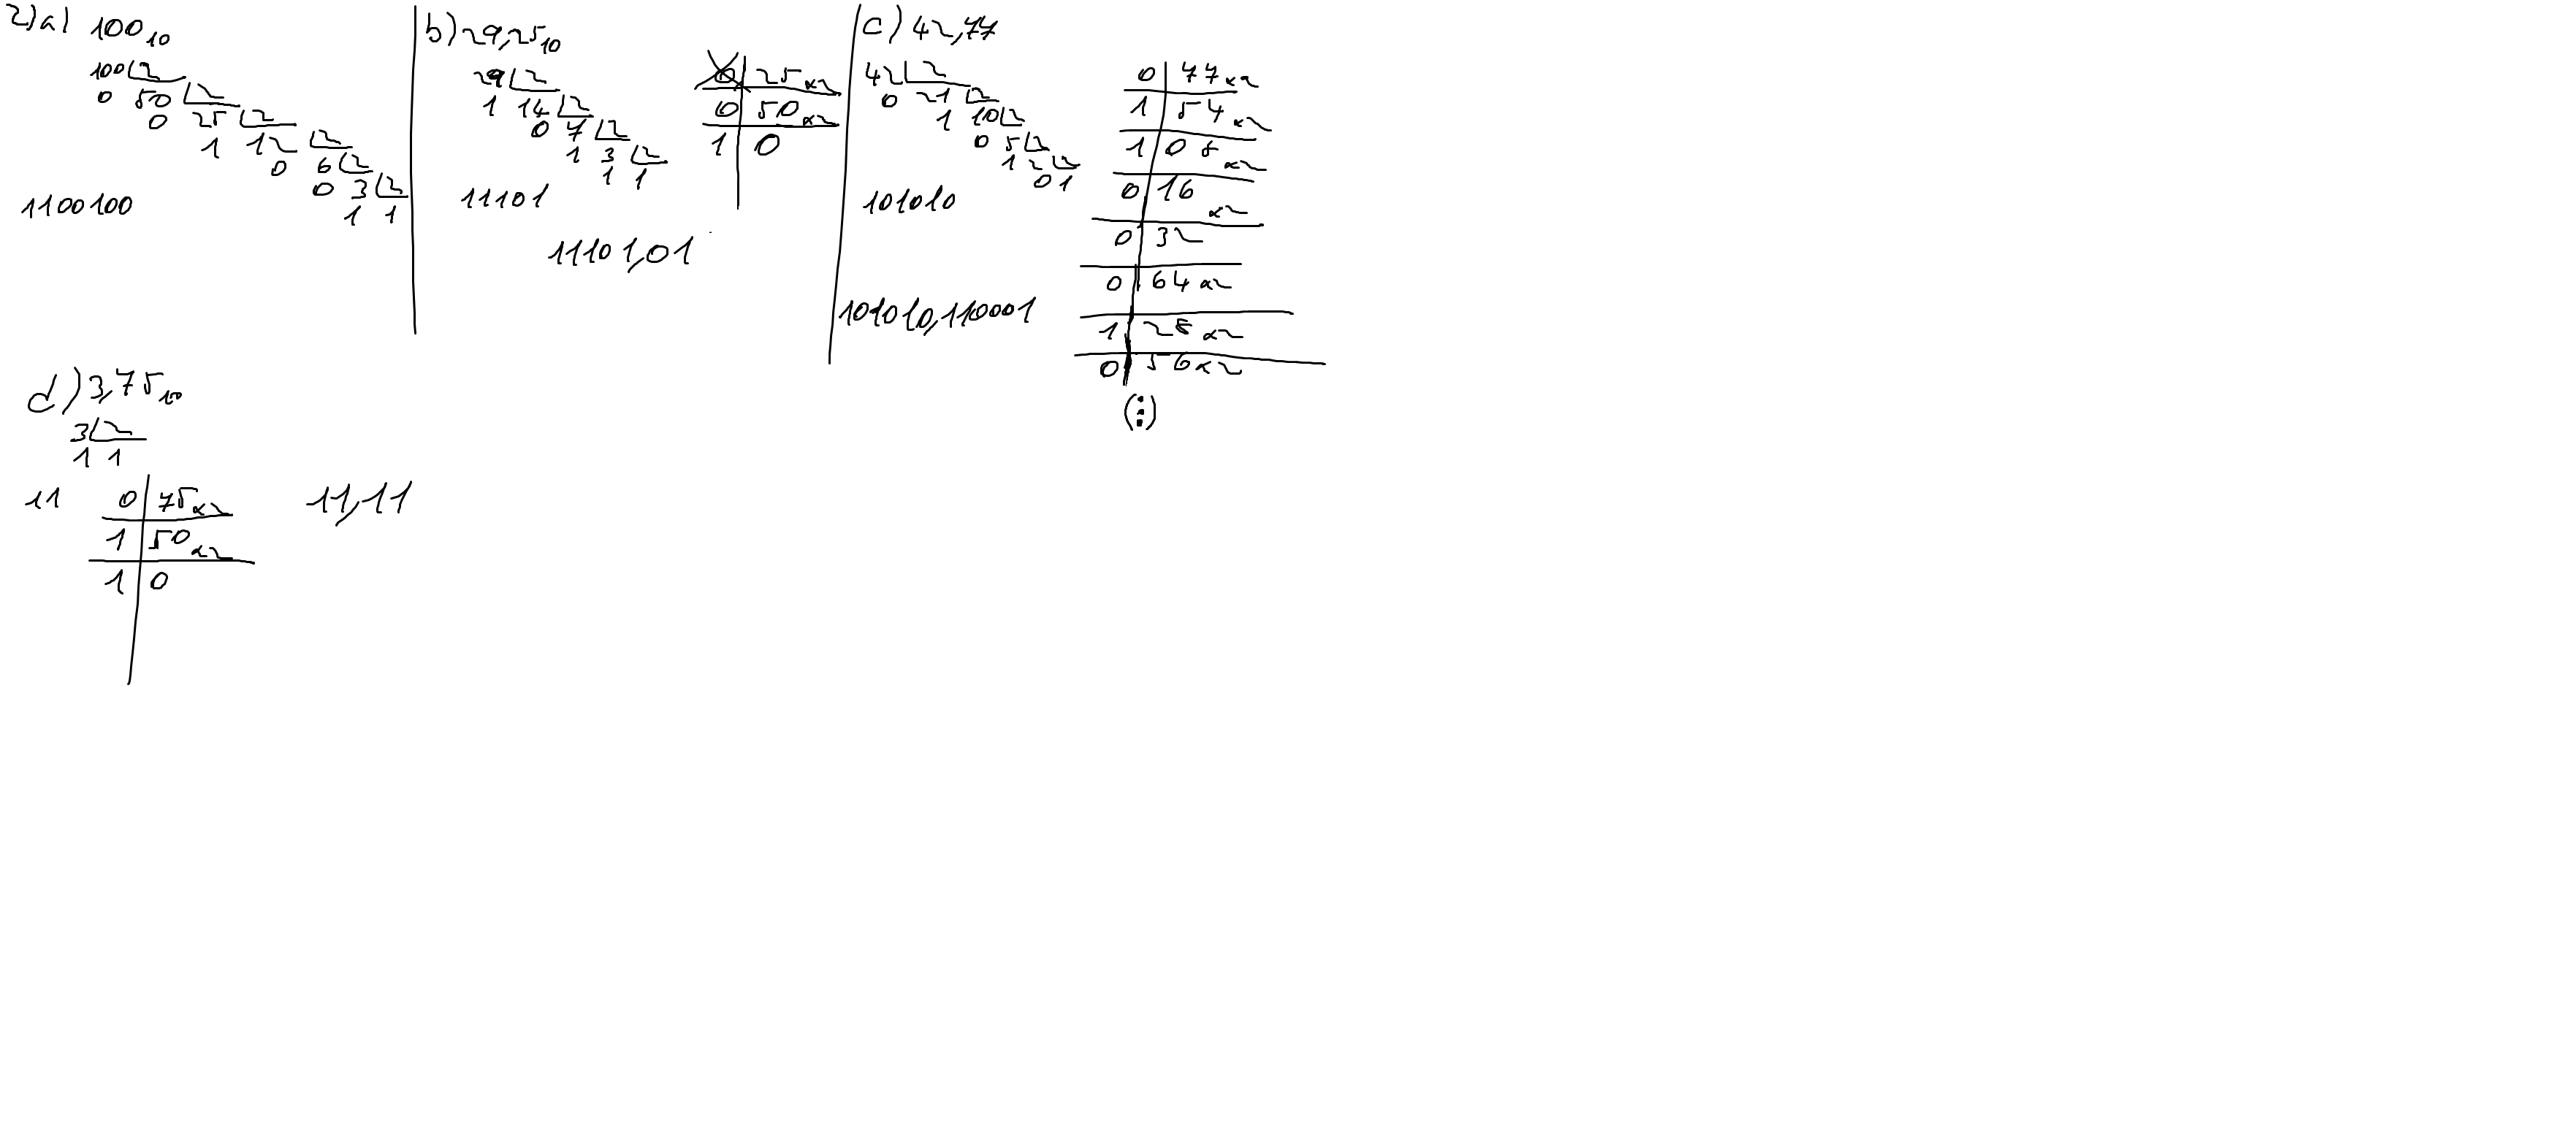 2)a) 100₁₀
100 2
0 50 2
0 25 2
1 12 2
0 6 2
0 3 2
1 1
1100100
b) 29,25₁₀
29 2
1 14 2
0 7 2
1 3 2
1 1
11101
0 25 x2
0 50 x2
1 0
11101,01
c) 42,77
42 2
0 21 2
1 10 2
0 5 2
1 2 2
0 1
101010
0 77 x2
1 54 x2
1 08 x2
0 16 x2
0 32
0 64 x2
1 28 x2
0 56 x2
(⋮)
101010,110001
d) 3,75₁₀
3 2
1 1
11
0 75 x2
1 50 x2
1 0
11,11